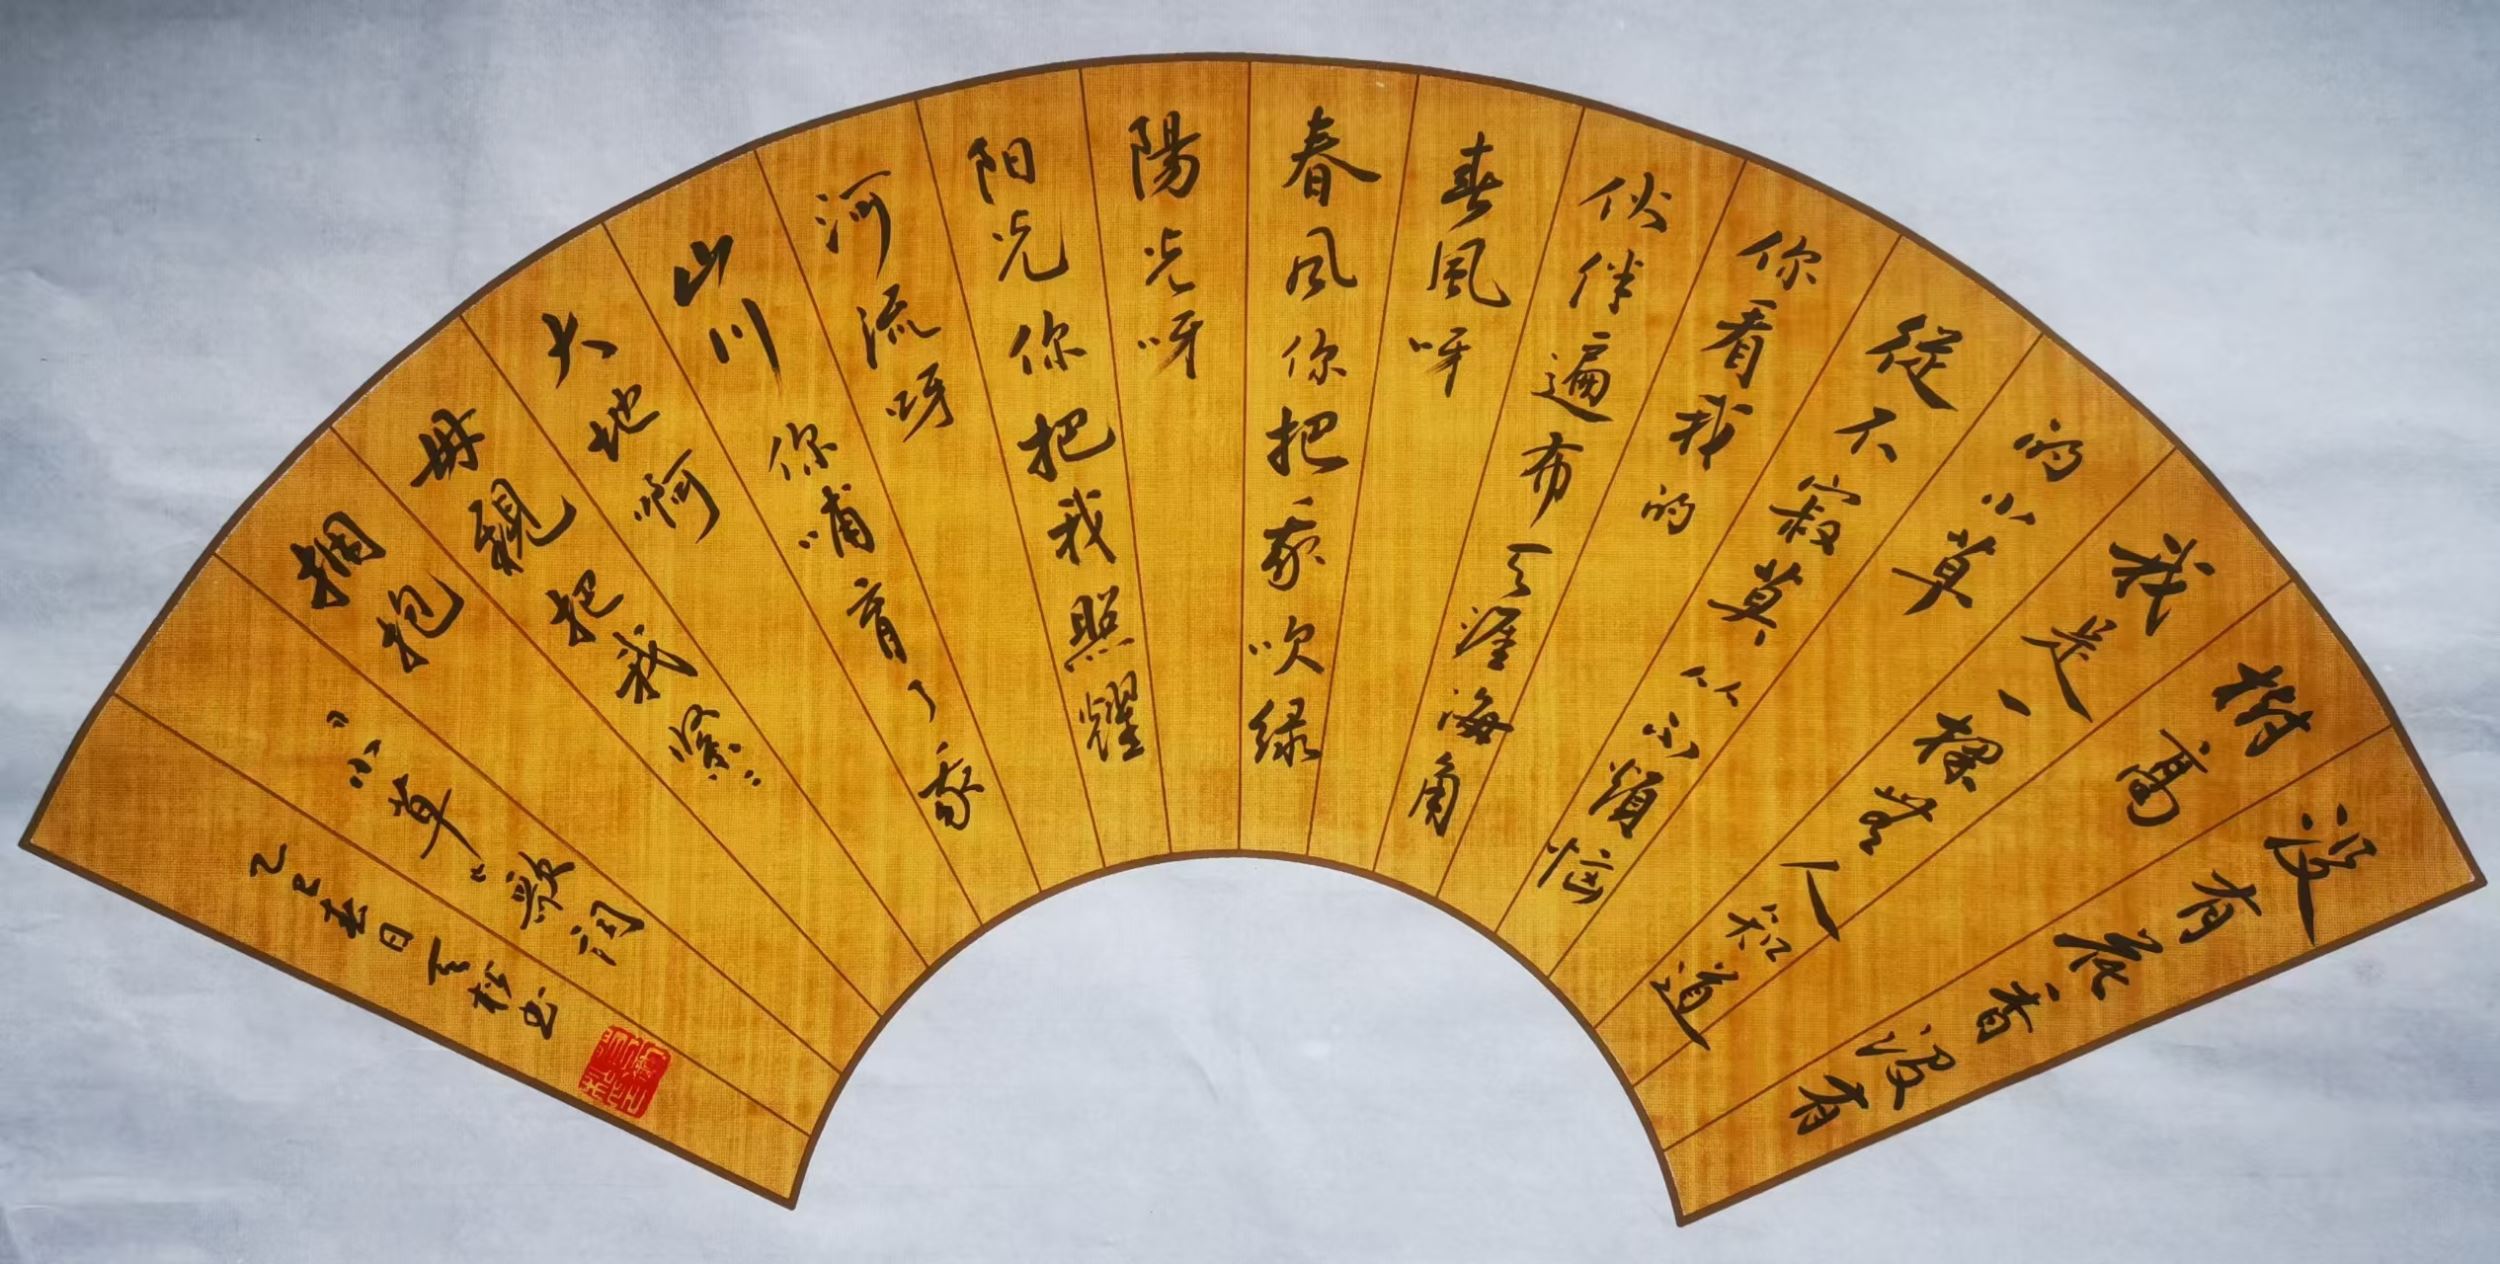 没有花香没有
樹高
我是一棵無人知道
的小草
從不寂寞从不煩恼
你看我的
伙伴遍布天涯海角
春風呀
春风你把我吹绿
陽光呀
阳光你把我照耀
河流呀
山川你哺育了我
大地啊
母親把我紧:
拥抱
"小草"歌词
乙巳春日 松书